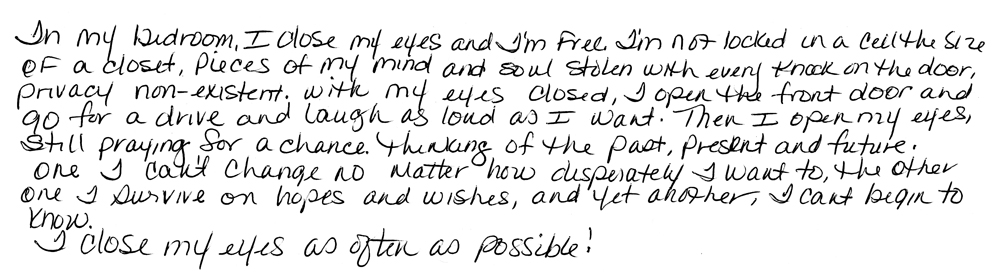 In my bedroom, I close my eyes and I'm Free. I'm not locked in a cell the size
OF a closet, Pieces of my mind and soul stolen with every knock on the door,
privacy non-existent. with my eyes closed, I open the front door and
go for a drive and laugh as loud as I want. Then I open my eyes,
still praying for a chance. thinking of the past, present and future.
one I can't change no matter how desperately I want to, the other
one I survive on hopes and wishes, and yet another, I cant begin to
know.
I close my eyes as often as possible!